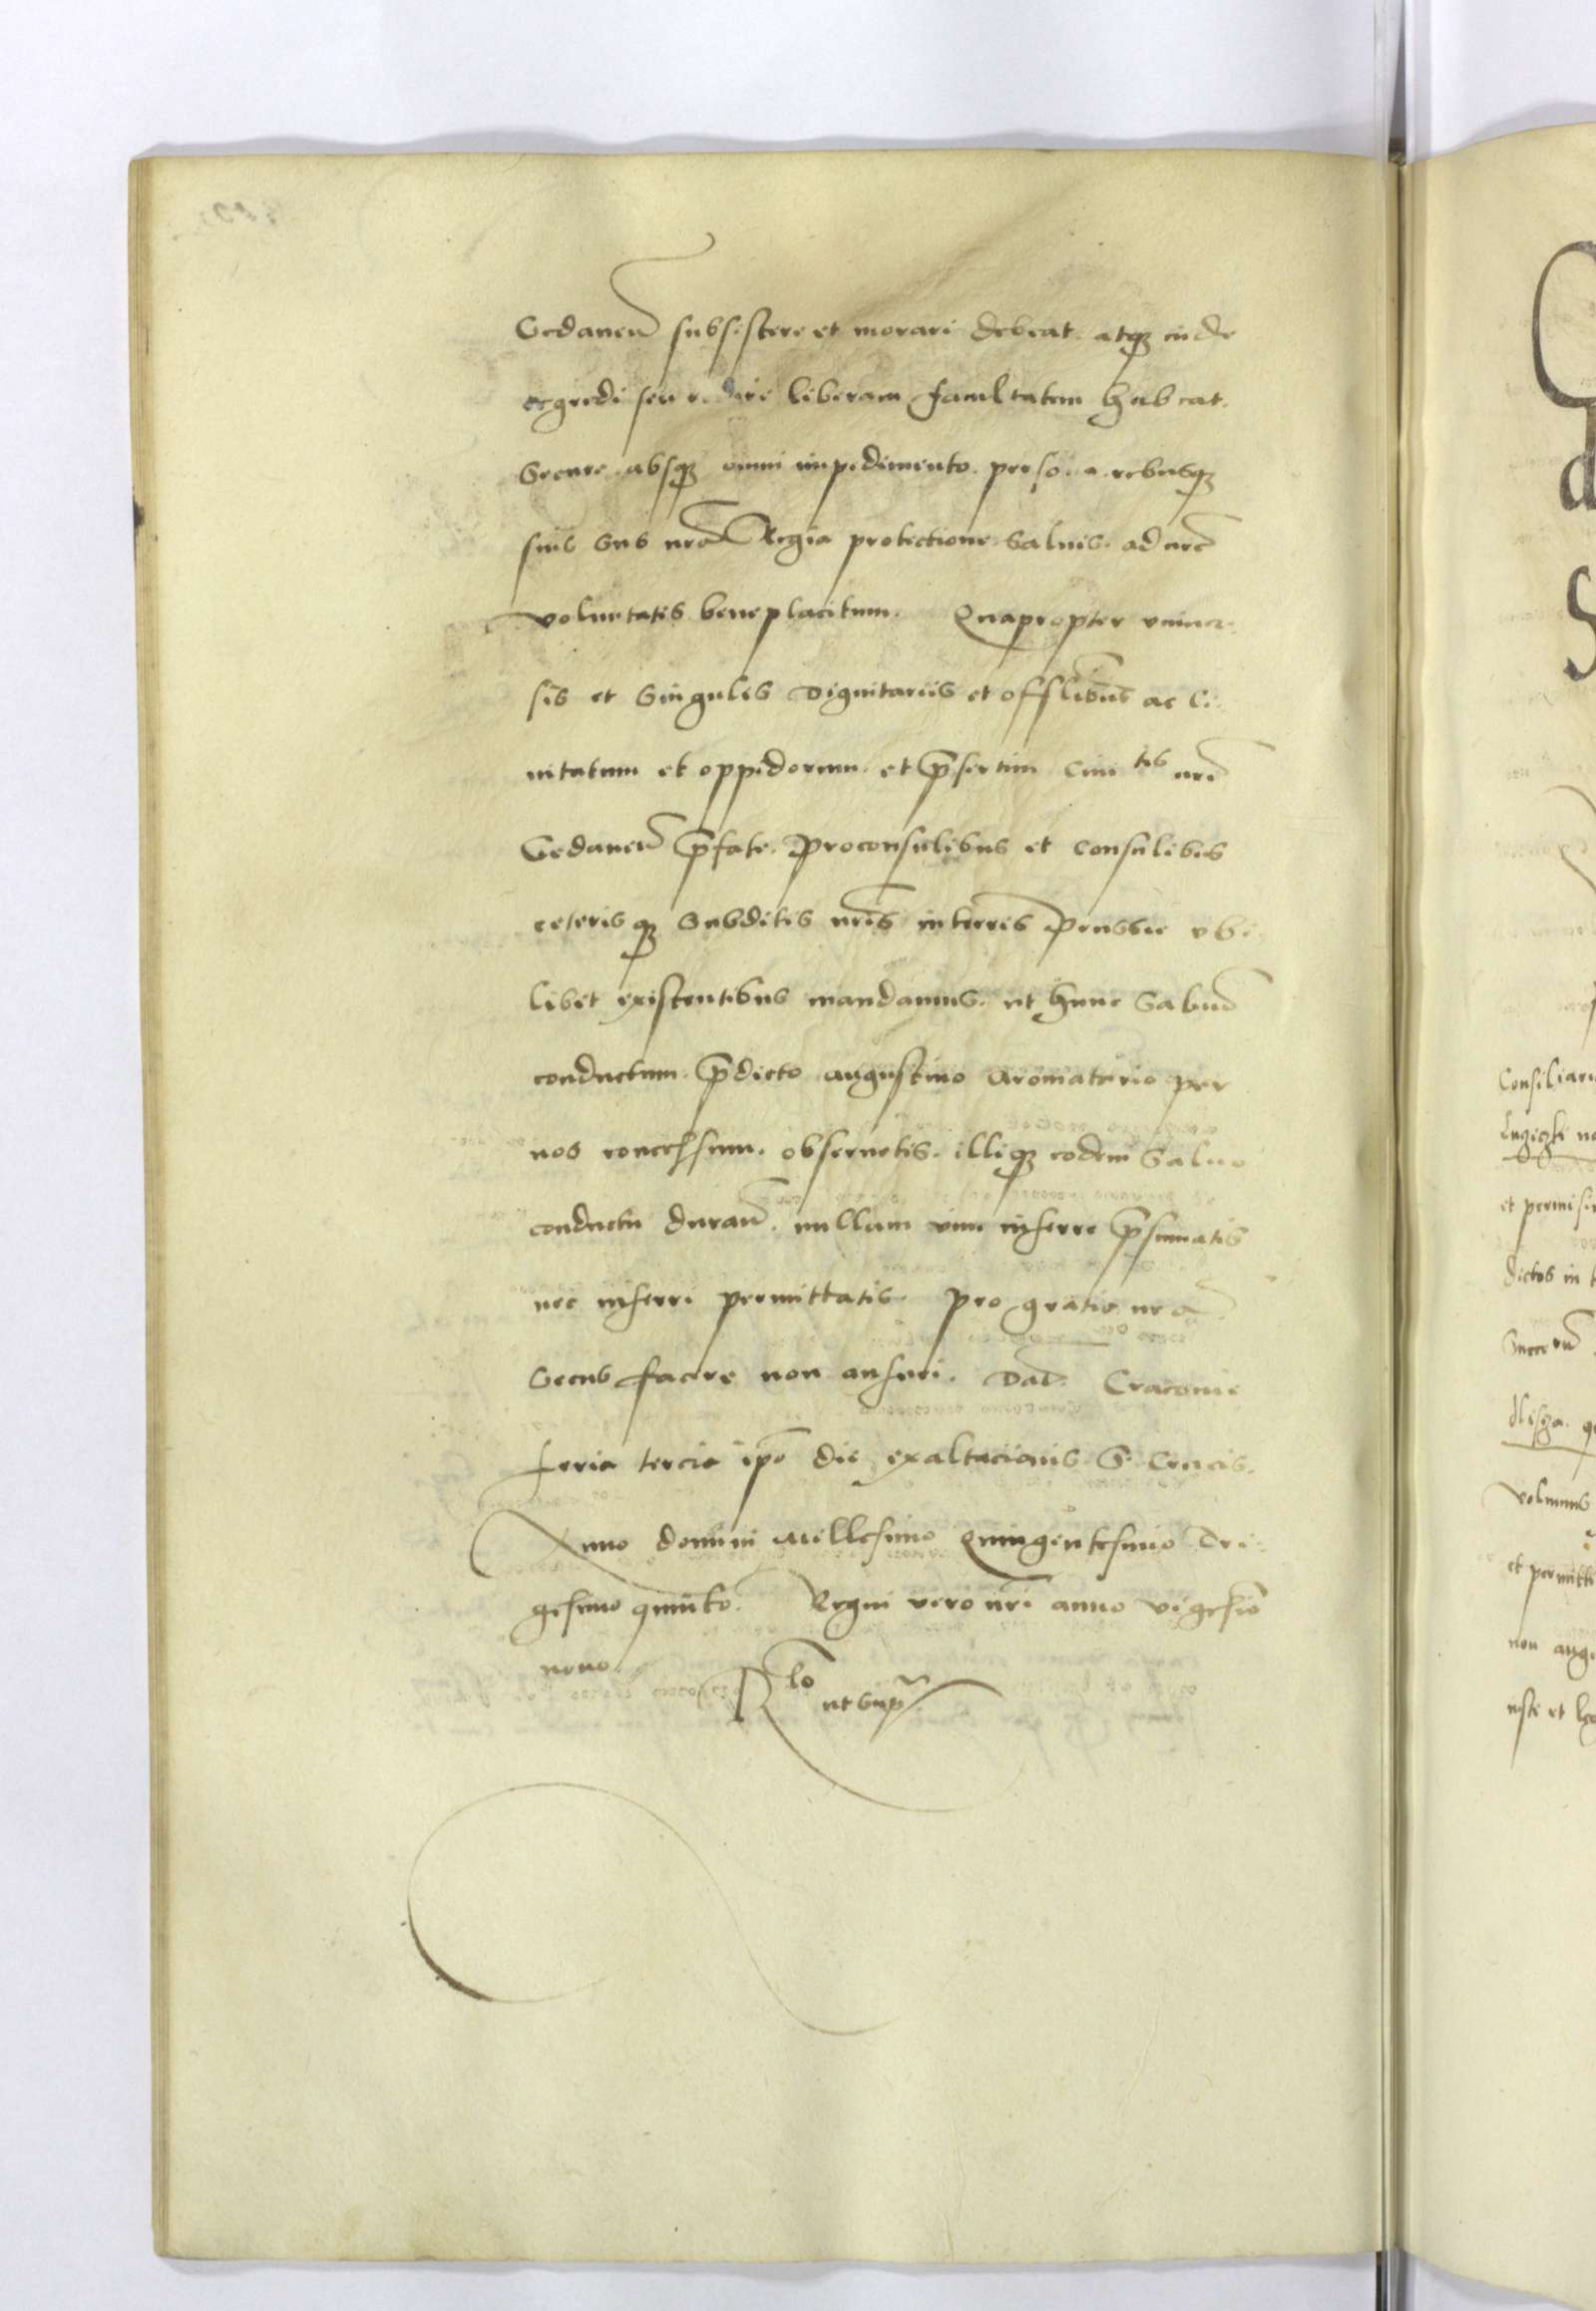 Gedanen subsistere et morari debeat. atq inde
egredi seu redire liberam facultatem habeat.
Secure absq omni impedimento. persona rebusq
suis sub nra Regia protectione Saluis. ad nre
voluntatis beneplacitum. Quapropter vniuer
sis et Singulis Dignitariis et offlibus ac Ci
uitatum et oppidorum. et p̄sertim Ciuitis nre
Gedanen p̄fate. Proconsulibus et Consulibus
ceterisq Subditis nris in terris Prussie vbi
libet existentibus mandamus. ut hunc Saluu
conductum. p̄dicto augustino Aromatario per
nos concessum. obseruetis. illiq eodem Saluo
conductu duran. nullam vim inferre p̄sumatis
nec inferri permittatis. pro gratia nra
Secus facere non ausuri. Dat. Cracouie
feria tercia ipo die exaltacionis S. Crucis.
Anno domini Millesimo Quingentesimo Tri
gesimo quinto. Regni vero nri anno vigesio
nono.
Rlo ut sup
Consiliari
et permisi
dictos in
volumus
et permitti
non ang